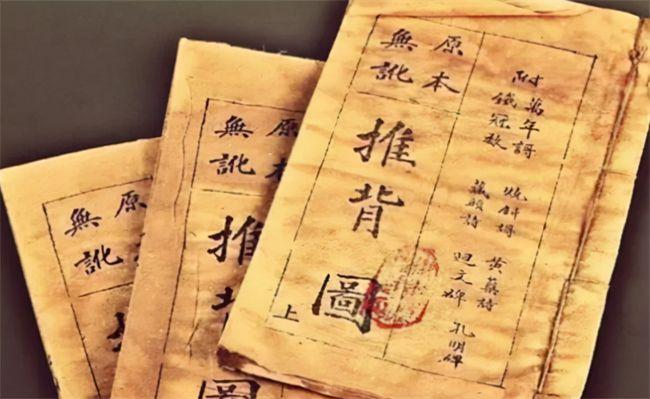 附萬年謌
鐵冠
燒餅謌
藏頭詩
黃蘗詩
孔明碑
原本
無訛
推背圖
上
原本
無訛
推
圖
原
無訛